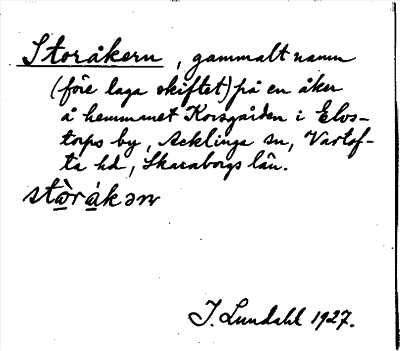 Storåkern, gammalt namn
(före laga skiftet) på en åker
å hemmanet Korsgården i Elvs-
torps by, Acklinga sn, Vartof-
ta hd, Skaraborgs län.
stòrákǝn
I. Lundahl 1927.